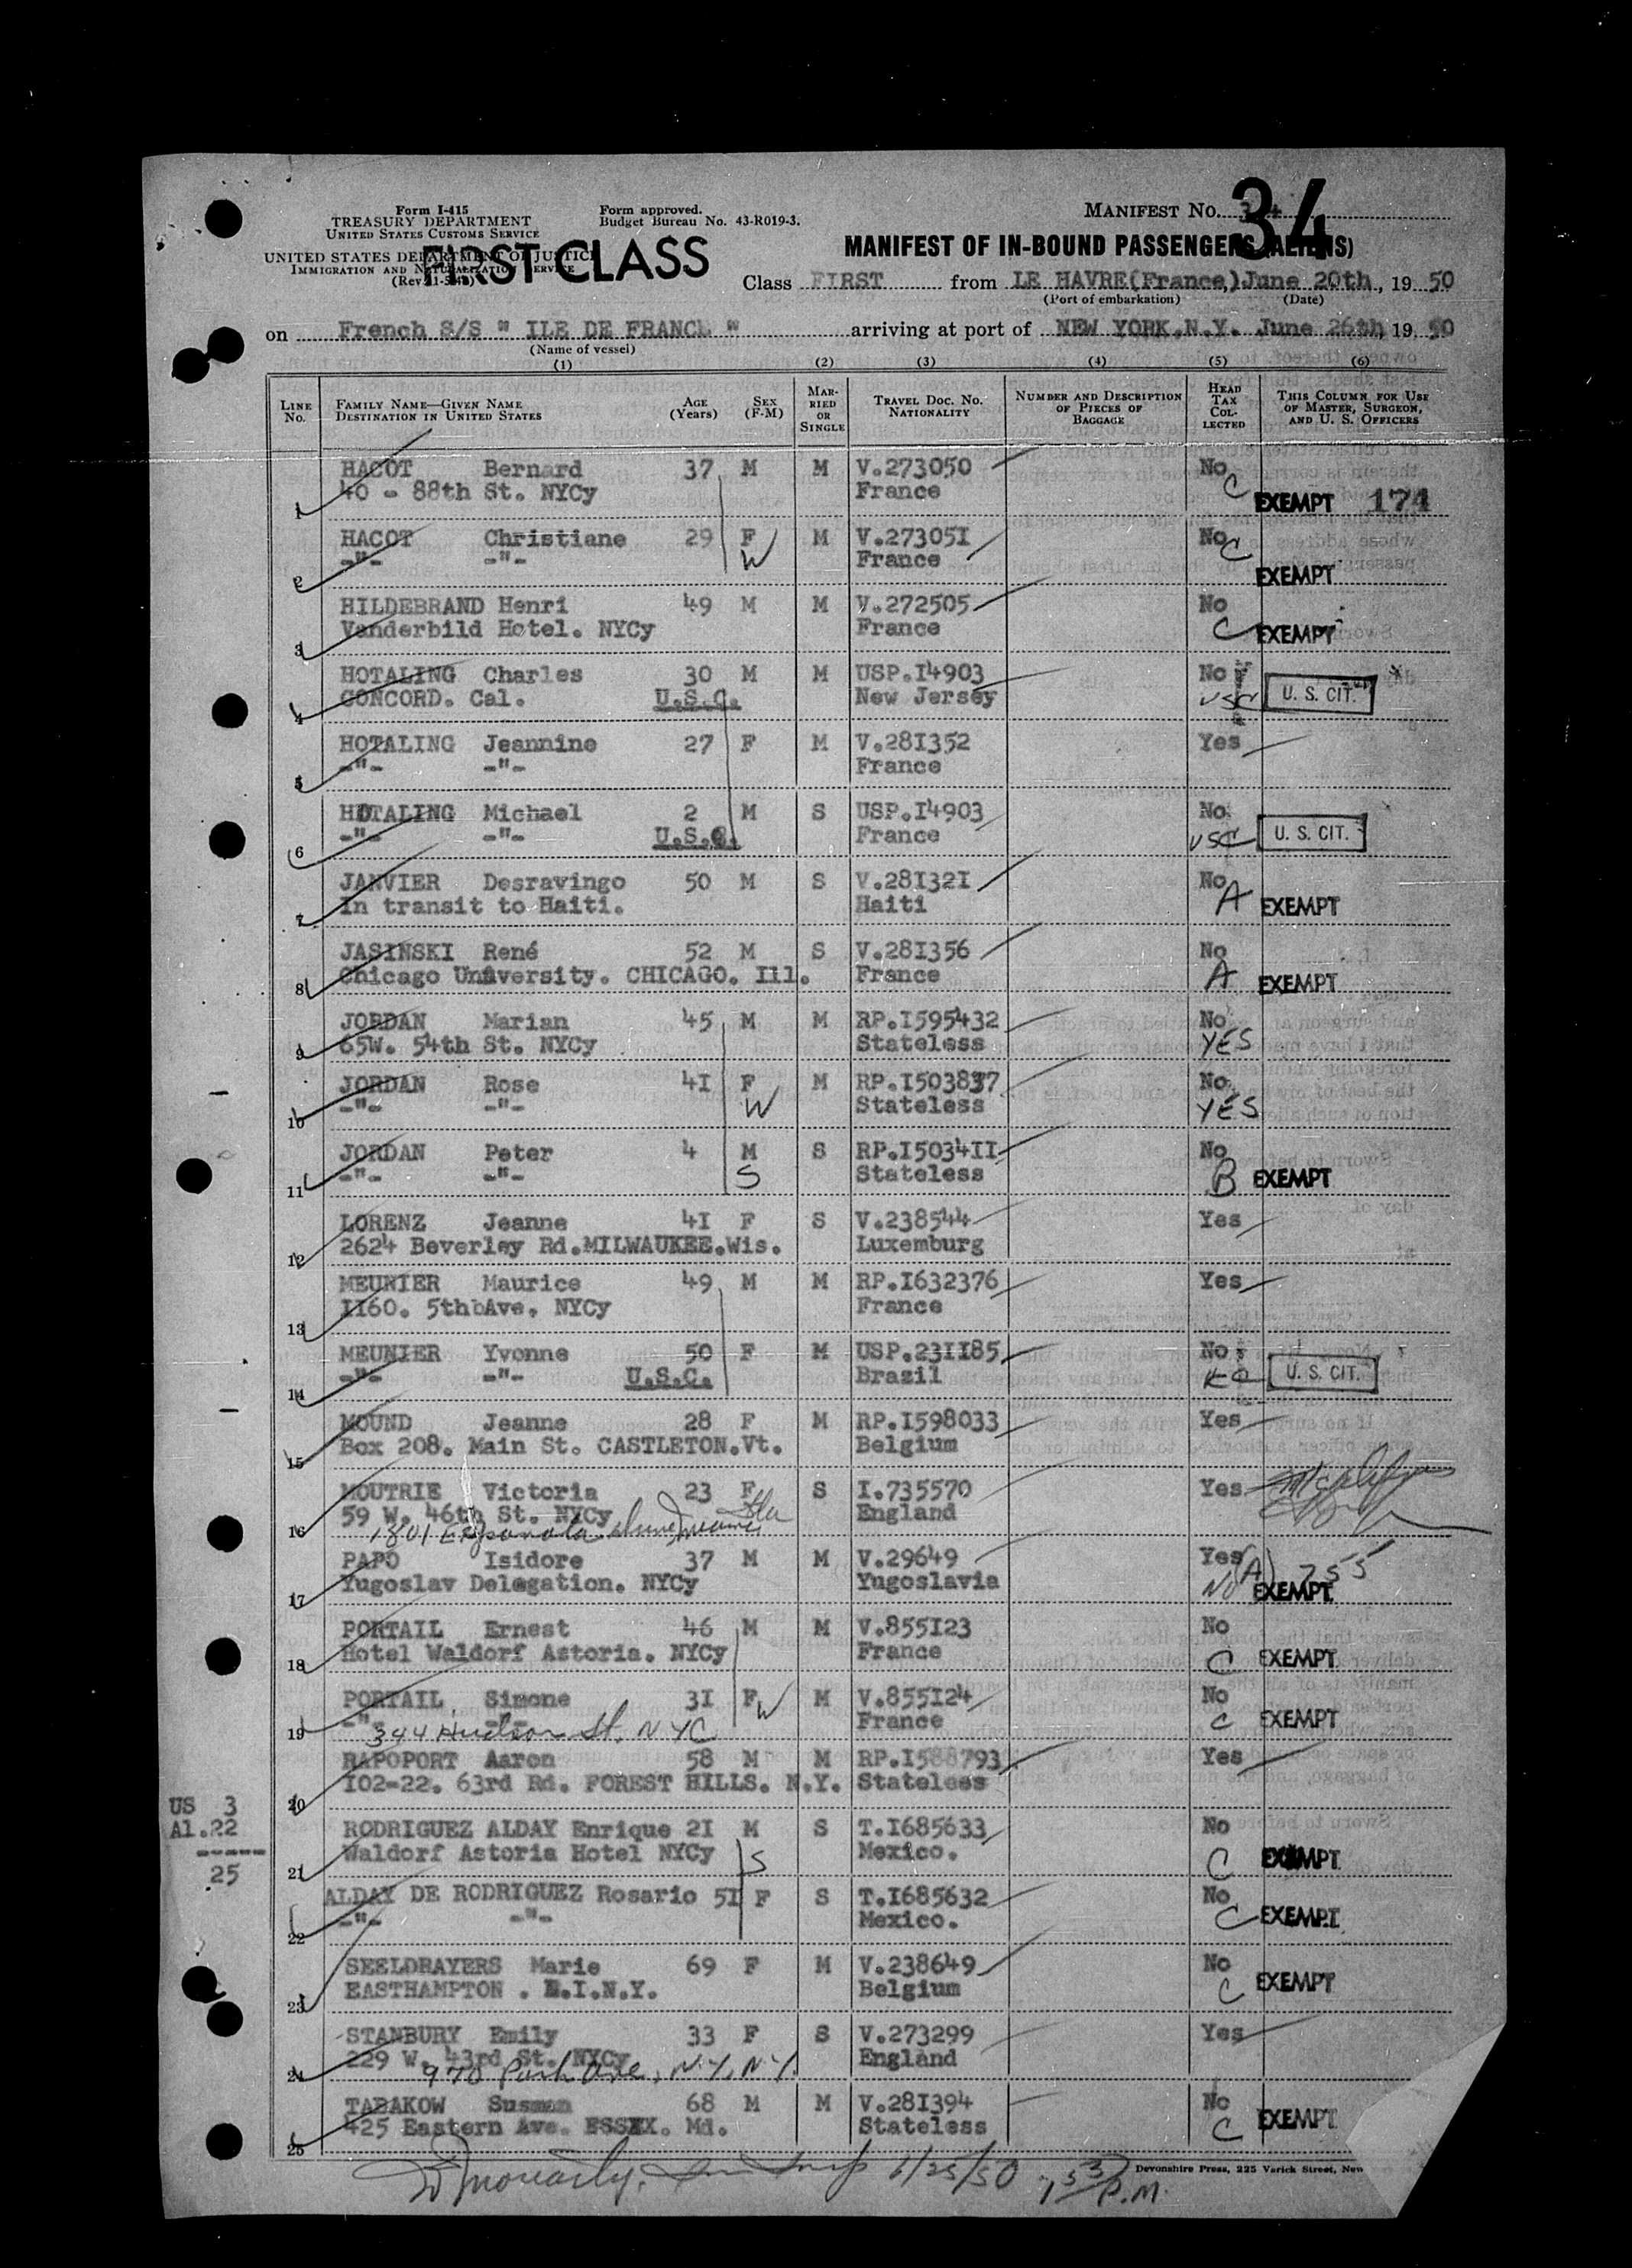 Form I-415
TREASURY DEPARTMENT
UNITED STATES CUSTOMS SERVICE
UNITED STATES DEPARTMENT OF JUSTICE
IMMIGRATION AND NATURALIZATION SERVICE
Form approved.
Budget Bureau No. 43-R019-3.
FIRST CLASS
MANIFEST No. 34
34
MANIFEST OF IN-BOUND PASSENGERS (ALIENS)
Class FIRST from LE HAVRE(France,)June 20th, 19 50
(Port of embarkation) (Date)
on French S/S " ILE DE FRANCE " arriving at port of NEW YORK.N.Y. June 26th, 19 50
(Name of vessel)
(1) (2) (3) (4) (5) (6)
LINE No. FAMILY NAME—GIVEN NAME DESTINATION IN UNITED STATES AGE (Years) SEX (F-M) MARRIED OR SINGLE TRAVEL DOC. NO. NATIONALITY NUMBER AND DESCRIPTION OF PIECES OF BAGGAGE HEAD TAX COLLECTED THIS COLUMN FOR USE OF MASTER, SURGEON, AND U. S. OFFICERS
HACOT Bernard 37 M M V.273050 No
1 40 - 88th St. NYCy France C EXEMPT 174
HACOT Christiane 29 F M V.27305I No
2 -"- -"- W France C EXEMPT
HILDEBRAND Henri 49 M M V.272505 No
3 Vanderbild Hotel. NYCy France C EXEMPT
HOTALING Charles 30 M M USP.I4903 No
4 CONCORD. Cal. U.S.C. New Jersey USC U. S. CIT.
HOTALING Jeannine 27 F M V.28I352 Yes
5 -"- -"- France
HOTALING Michael 2 M S USP.I4903 No
6 -"- -"- U.S.C. France USC U. S. CIT.
JANVIER Desravingo 50 M S V.28I32I No
7 In transit to Haiti. Haiti A EXEMPT
JASINSKI René 52 M S V.28I356 No
8 Chicago University. CHICAGO. Ill. France A EXEMPT
JORDAN Marian 45 M M RP.I595432 No
9 65W. 54th St. NYCy Stateless YES
JORDAN Rose 4I F M RP.I503837 No
10 -"- -"- W Stateless YES
JORDAN Peter 4 M S RP.I5034II No
11 -"- -"- S Stateless B EXEMPT
LORENZ Jeanne 4I F S V.238544 Yes
12 2624 Beverley Rd.MILWAUKEE.Wis. Luxemburg
MEUNIER Maurice 49 M M RP.I632376 Yes
13 II60. 5thbAve. NYCy France
MEUNIER Yvonne 50 F M USP.23II85 No
14 -"- -"- U.S.C. Brazil U. S. CIT.
MOUND Jeanne 28 F M RP.I598033 Yes
15 Box 208. Main St. CASTLETON.Vt. Belgium
MOUTRIE Victoria 23 F S I.735570 Yes
59 W. 46th St. NYCy England
16 1801 Fla
PAPO Isidore 37 M M V.29649 Yes (A) 755
17 Yugoslav Delegation. NYCy Yugoslavia No EXEMPT
PORTAIL Ernest 46 M M V.855I23 No
18 Hotel Waldorf Astoria. NYCy France C EXEMPT
PORTAIL Simone 3I F W M V.855I24 No
-"- -"- France C EXEMPT
19 344 Hudson St. NYC
RAPOPORT Aaron 58 M M RP.I588793 Yes
20 I02-22. 63rd Rd. FOREST HILLS. N.Y. Stateless
US 3
Al.22
-----
25
RODRIGUEZ ALDAY Enrique 2I M S T.I685633 No
21 Waldorf Astoria Hotel NYCy S Mexico. C EXEMPT
ALDAY DE RODRIGUEZ Rosario 5I F S T.I685632 No
22 -"- -"- Mexico. C EXEMPT
SEELDRAYERS Marie 69 F M V.238649 No
23 EASTHAMPTON . L.I.N.Y. Belgium C EXEMPT
STANBURY Emily 33 F S V.273299 Yes
229 W. 43rd St. NYCy England
24 970 Park Ave, N.Y, N.Y.
TABAKOW Susman 68 M M V.28I394 No
25 425 Eastern Ave. ESSEX. Md. Stateless C EXEMPT
6/25/50 P.M.
Devonshire Press, 225 Varick Street, New